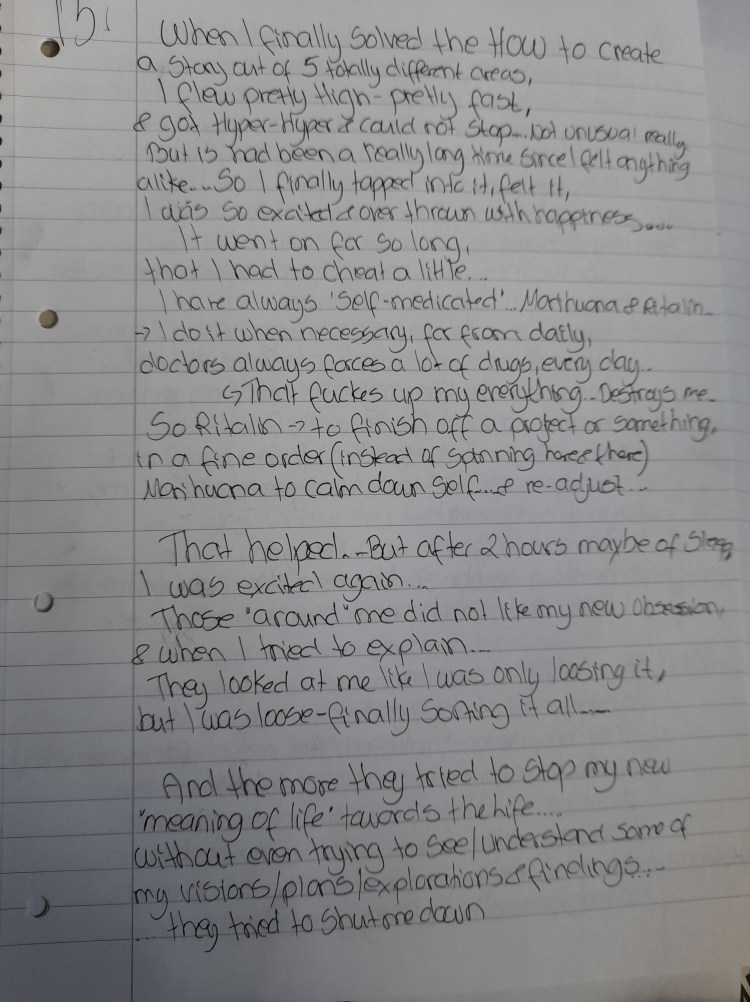 15!
When I finally solved the How to create
a story out of 5 totally different areas,
I flew pretty High - pretty fast,
& got Hyper-Hyper & could not stop... Not unusual really
But is had been a really long time since I felt anything
alike... So I finally tapped into it, felt it,
I was so excited & over thrown with happiness.....
It went on for so long,
that I had to cheat a little...
I have always 'Self-medicated'... Marihuana & Ritalin..
→ I do it when necessary, far from daily,
doctors always forces a lot of drugs, every day.
↳ That fuckes up my everything.. Destroys me..
So Ritalin → to finish off a project or something,
in a fine order (instead of spinning here & there)
Marihuana to calm down self....& re-adjust...
That helped... But after 2 hours maybe of sleep,
I was excited again....
Those "around" me did not like my new obsession,
& when I tried to explain....
They looked at me like I was only loosing it,
but I was loose - finally sorting it all.....
And the more they tried to stop my new
"meaning of life" towards the life....
without even trying to see/understand some of
my visions/plans/explorations & findings....
... they tried to shut me down